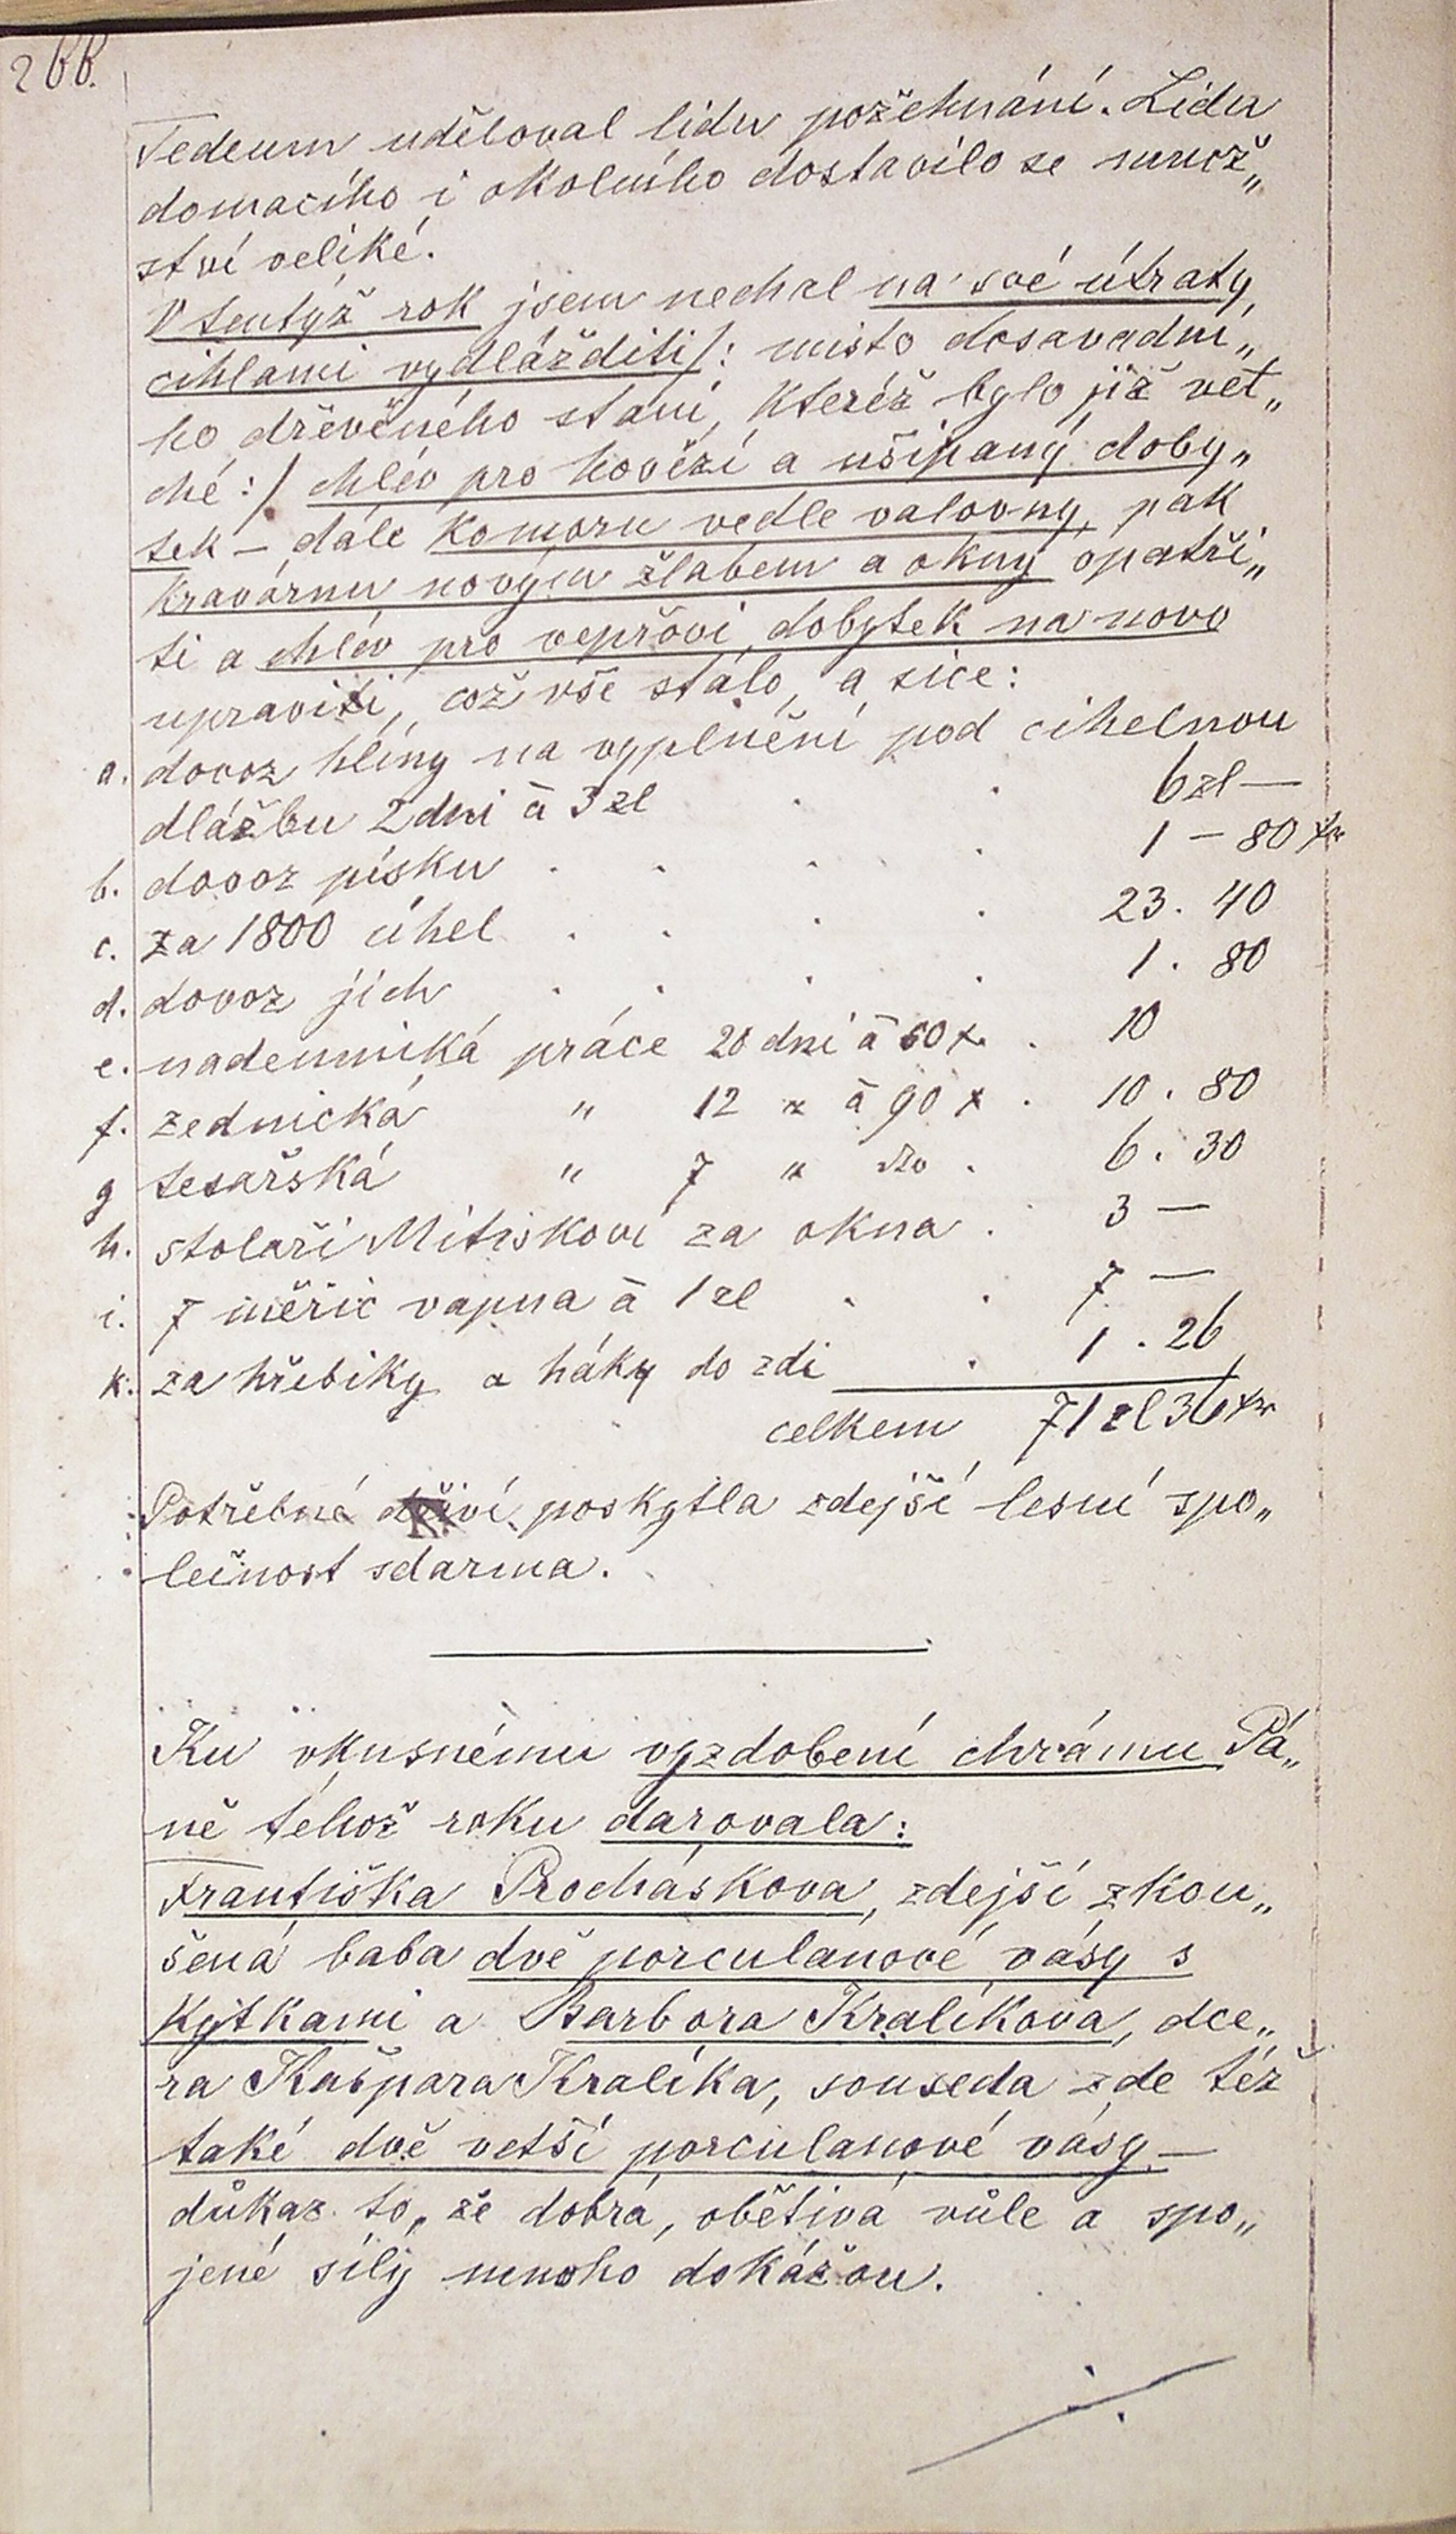 266.
Tedeum uděloval lidu požehnání. Lidu
domacího i okolního dostavilo se množ„
ství veliké.
V tentýž rok jsem nechal na své útraty
cihlami vydlážditi /: místo dosavadní„
ho dřevěného staní, kteréž bylo již vet„
ché :/ chlév pro hovězí a nšipaný doby„
tek – dále komoru vedle valovny, pak
kravárnu novým žlabem a okny opatři„
ti a chlév pro vepřoví dobytek na novo
upraviti, což vše stálo, a sice:
a. dovoz hlíny na vyplnění pod cihelnou
dlážbu 2 dni á 3 zl . . 6 zl —
b. dovoz písku . . . . 1 – 80 xr
c. za 1800 cihel . . . . 23. 40
d. dovoz jich . . . . . 1. 80
e. nadennická práce 20 dní á 50 x. . 10
f. zednická „ 12 „ á 90 x . 10. 80
g tesařská „ 7 „ dto . 6. 30
h. stolaři Mitiskovi za okna . 3 —
i. 7 měřic vapna á 1 zl . . 7 —
k. za hřebíky a háky do zdi . 1. 26
celkem 71 zl 36 xr
Potřebné dříví poskytla zdejší lesní spo„
lečnost sdarma.
Ku vkusnému vyzdobení chrámu Pá„
ně téhož roku darovala:
Františka Procháskova, zdejší zkou„
šená baba dvě porculanové vásy s
kytkami a Barbora Kralíkova, dce„
ra Kašpara Kralíka, souseda zde též
také dvě vetší porculanové vásy –
důkaz to, že dobrá, obětivá vůle a spo„
jené síly mnoho dokážou.
./.